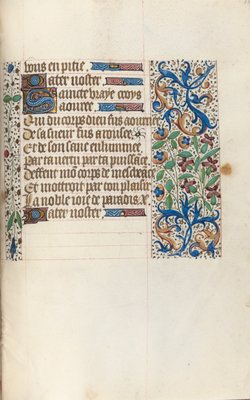 uous en pitie.
Pater noster.
Saincte vraye croys
aouree.
Qui du corps dieu fus aournee
De sa sueur fus arousee.
Et de son sanc enluminee
Par ta vertu par ta puissance
Deffent mon corps de mescheance
Et mottroit par ton plaisir
La noble ioie de paradis.
Pater noster.